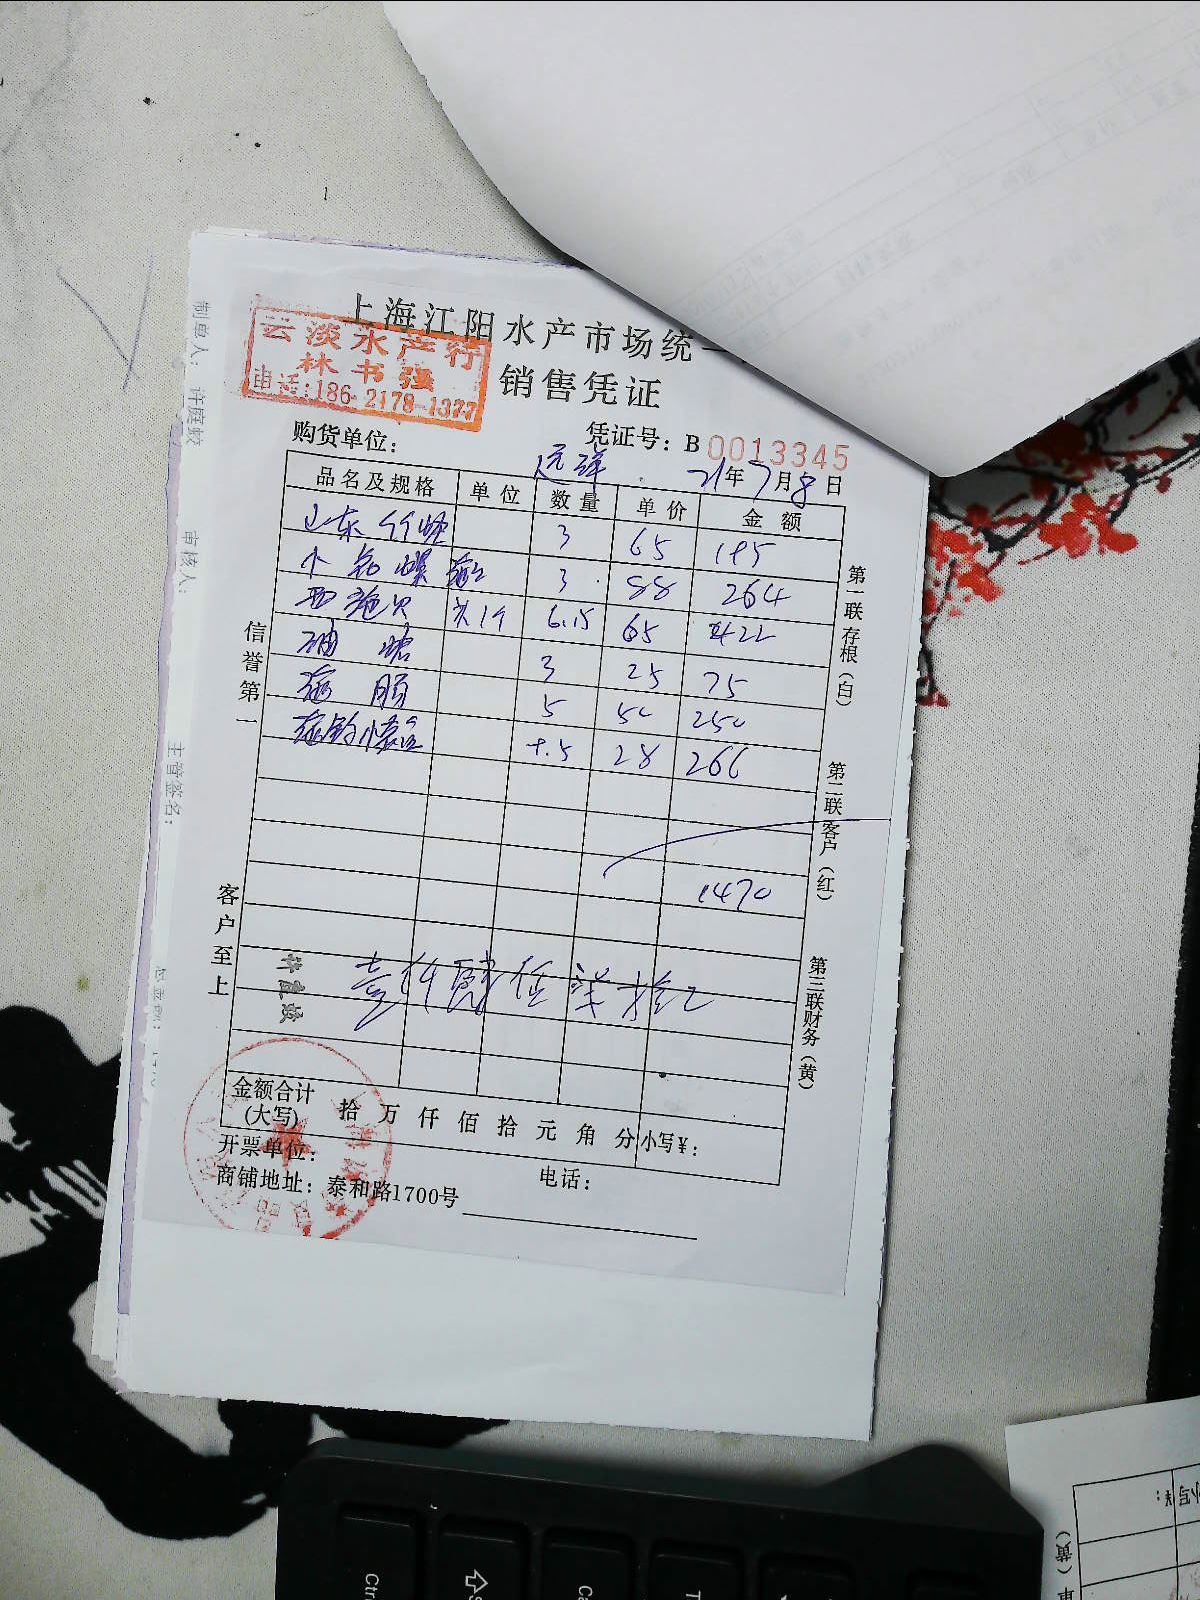 上海江阳水产市场统一
销售凭证
云淡水产行
林书强
电话:186-2178-1377
购货单位: 远洋
凭证号: B 0013345
21年7月8日
品名及规格 单位 数量 单价 金额
山东 3 65 195
小 螺 3 88 264
西施贝 共1个 6.15 65 422
3 25 75
5 50 250
9.5 28 266
1470
壹仟肆佰柒拾元
金额合计
(大写) 拾 万 仟 佰 拾 元 角 分 小写¥:
开票单位: 电话:
商铺地址: 泰和路1700号
信誉第一
客户至上
第一联存根(白)
第二联客户(红)
第三联财务(黄)
制单人: 许庭蛟
审核人:
主管签名:
Ctr
小写¥:
(黄)